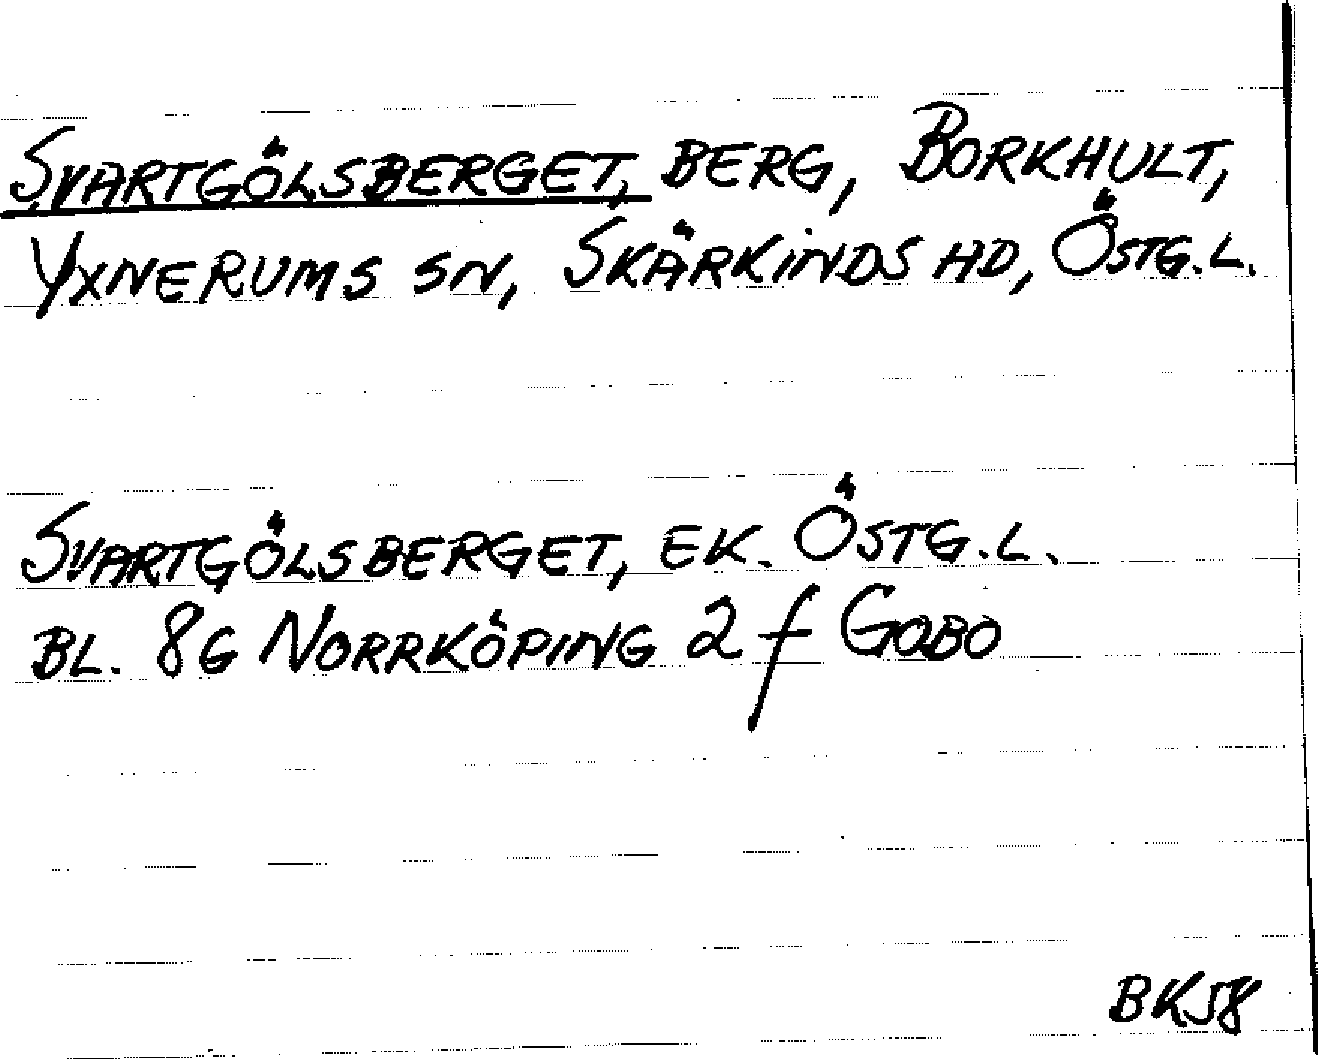 SVARTGÖLSBERGET, BERG, BORKHULT,
YXNERUMS SN, SKÄRKINDS HD, ÖSTG.L.
SVARTGÖLSBERGET, EK. ÖSTG.L.
BL. 8G NORRKÖPING 2 f GOBO
BK58